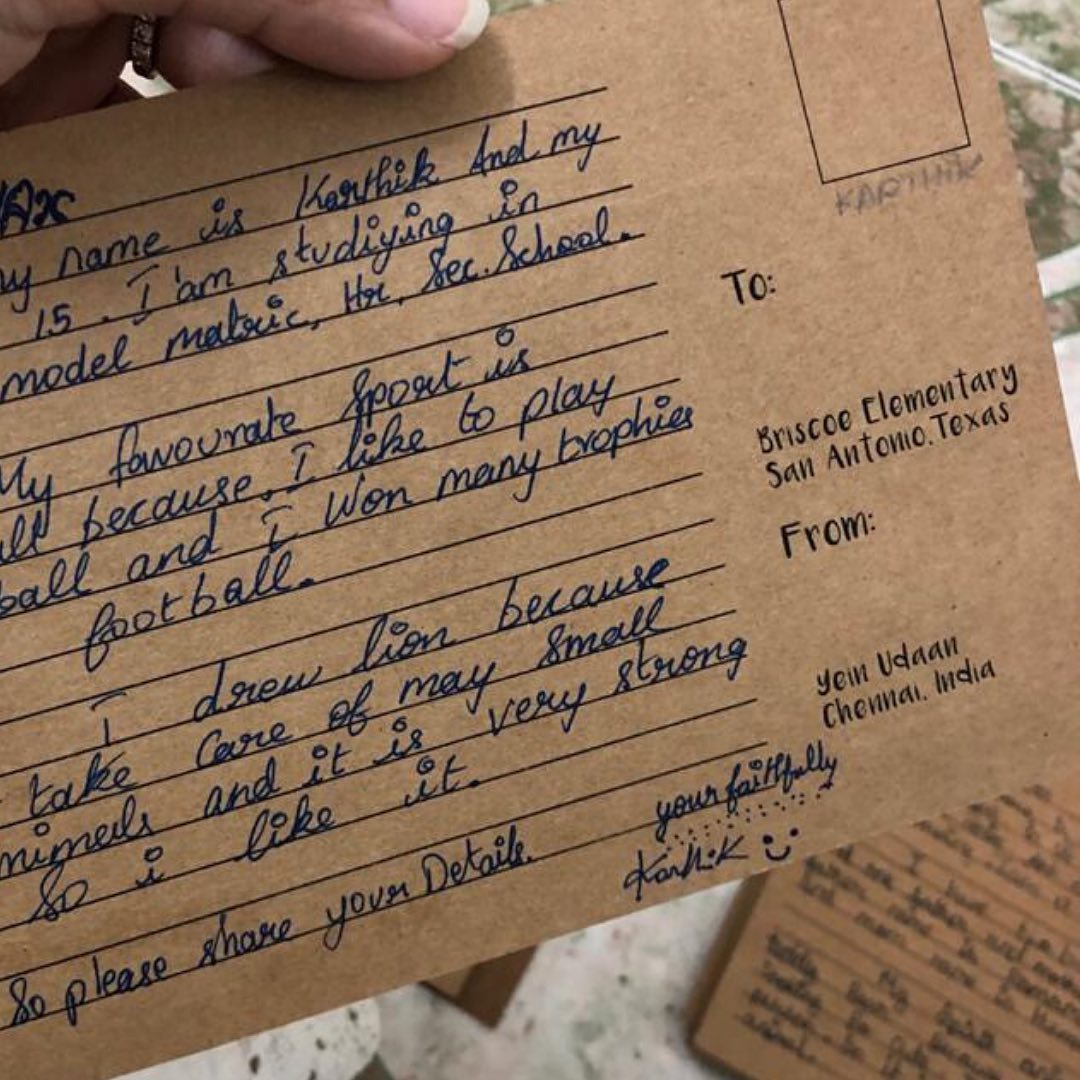 my name is Karthik And my
15. I'am studiying in
model matric, Hr, Sec. School.
My favourate sport is
all because. I like to play
ball and I won many trophies
football.
I drew lion because
take care of may small
nimeils and it is very strong
So i like it.
So please share your Details.
your faithfully
Karthik
KARTHIK
To:
Briscoe Elementary
San Antonio. Texas
From:
Yein Udaan
Chennai. India